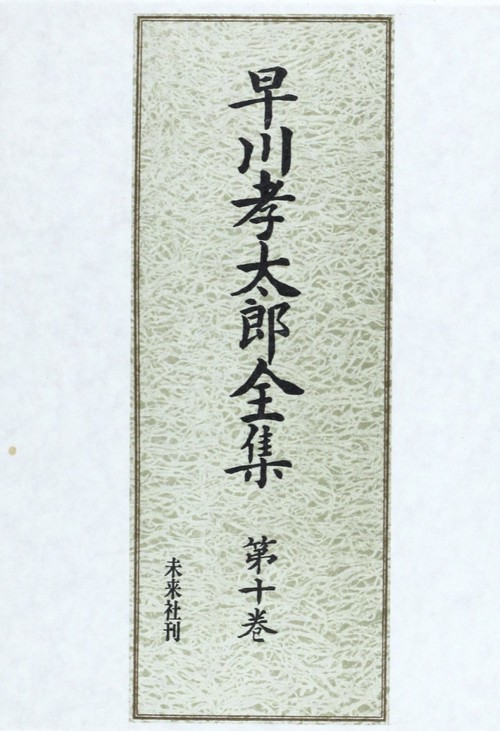 早川孝太郎全集
第十巻
未来社刊